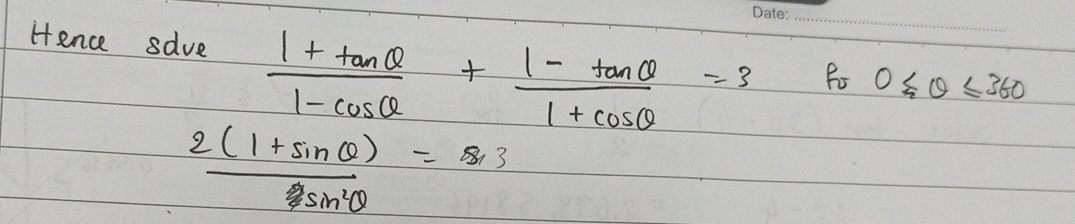 Date:
Hence solve (1 + tanθ)/(1 - cosθ) + (1 - tanθ)/(1 + cosθ) = 3 for 0 ≤ θ ≤ 360
2(1 + sinθ)/sin²θ = 3